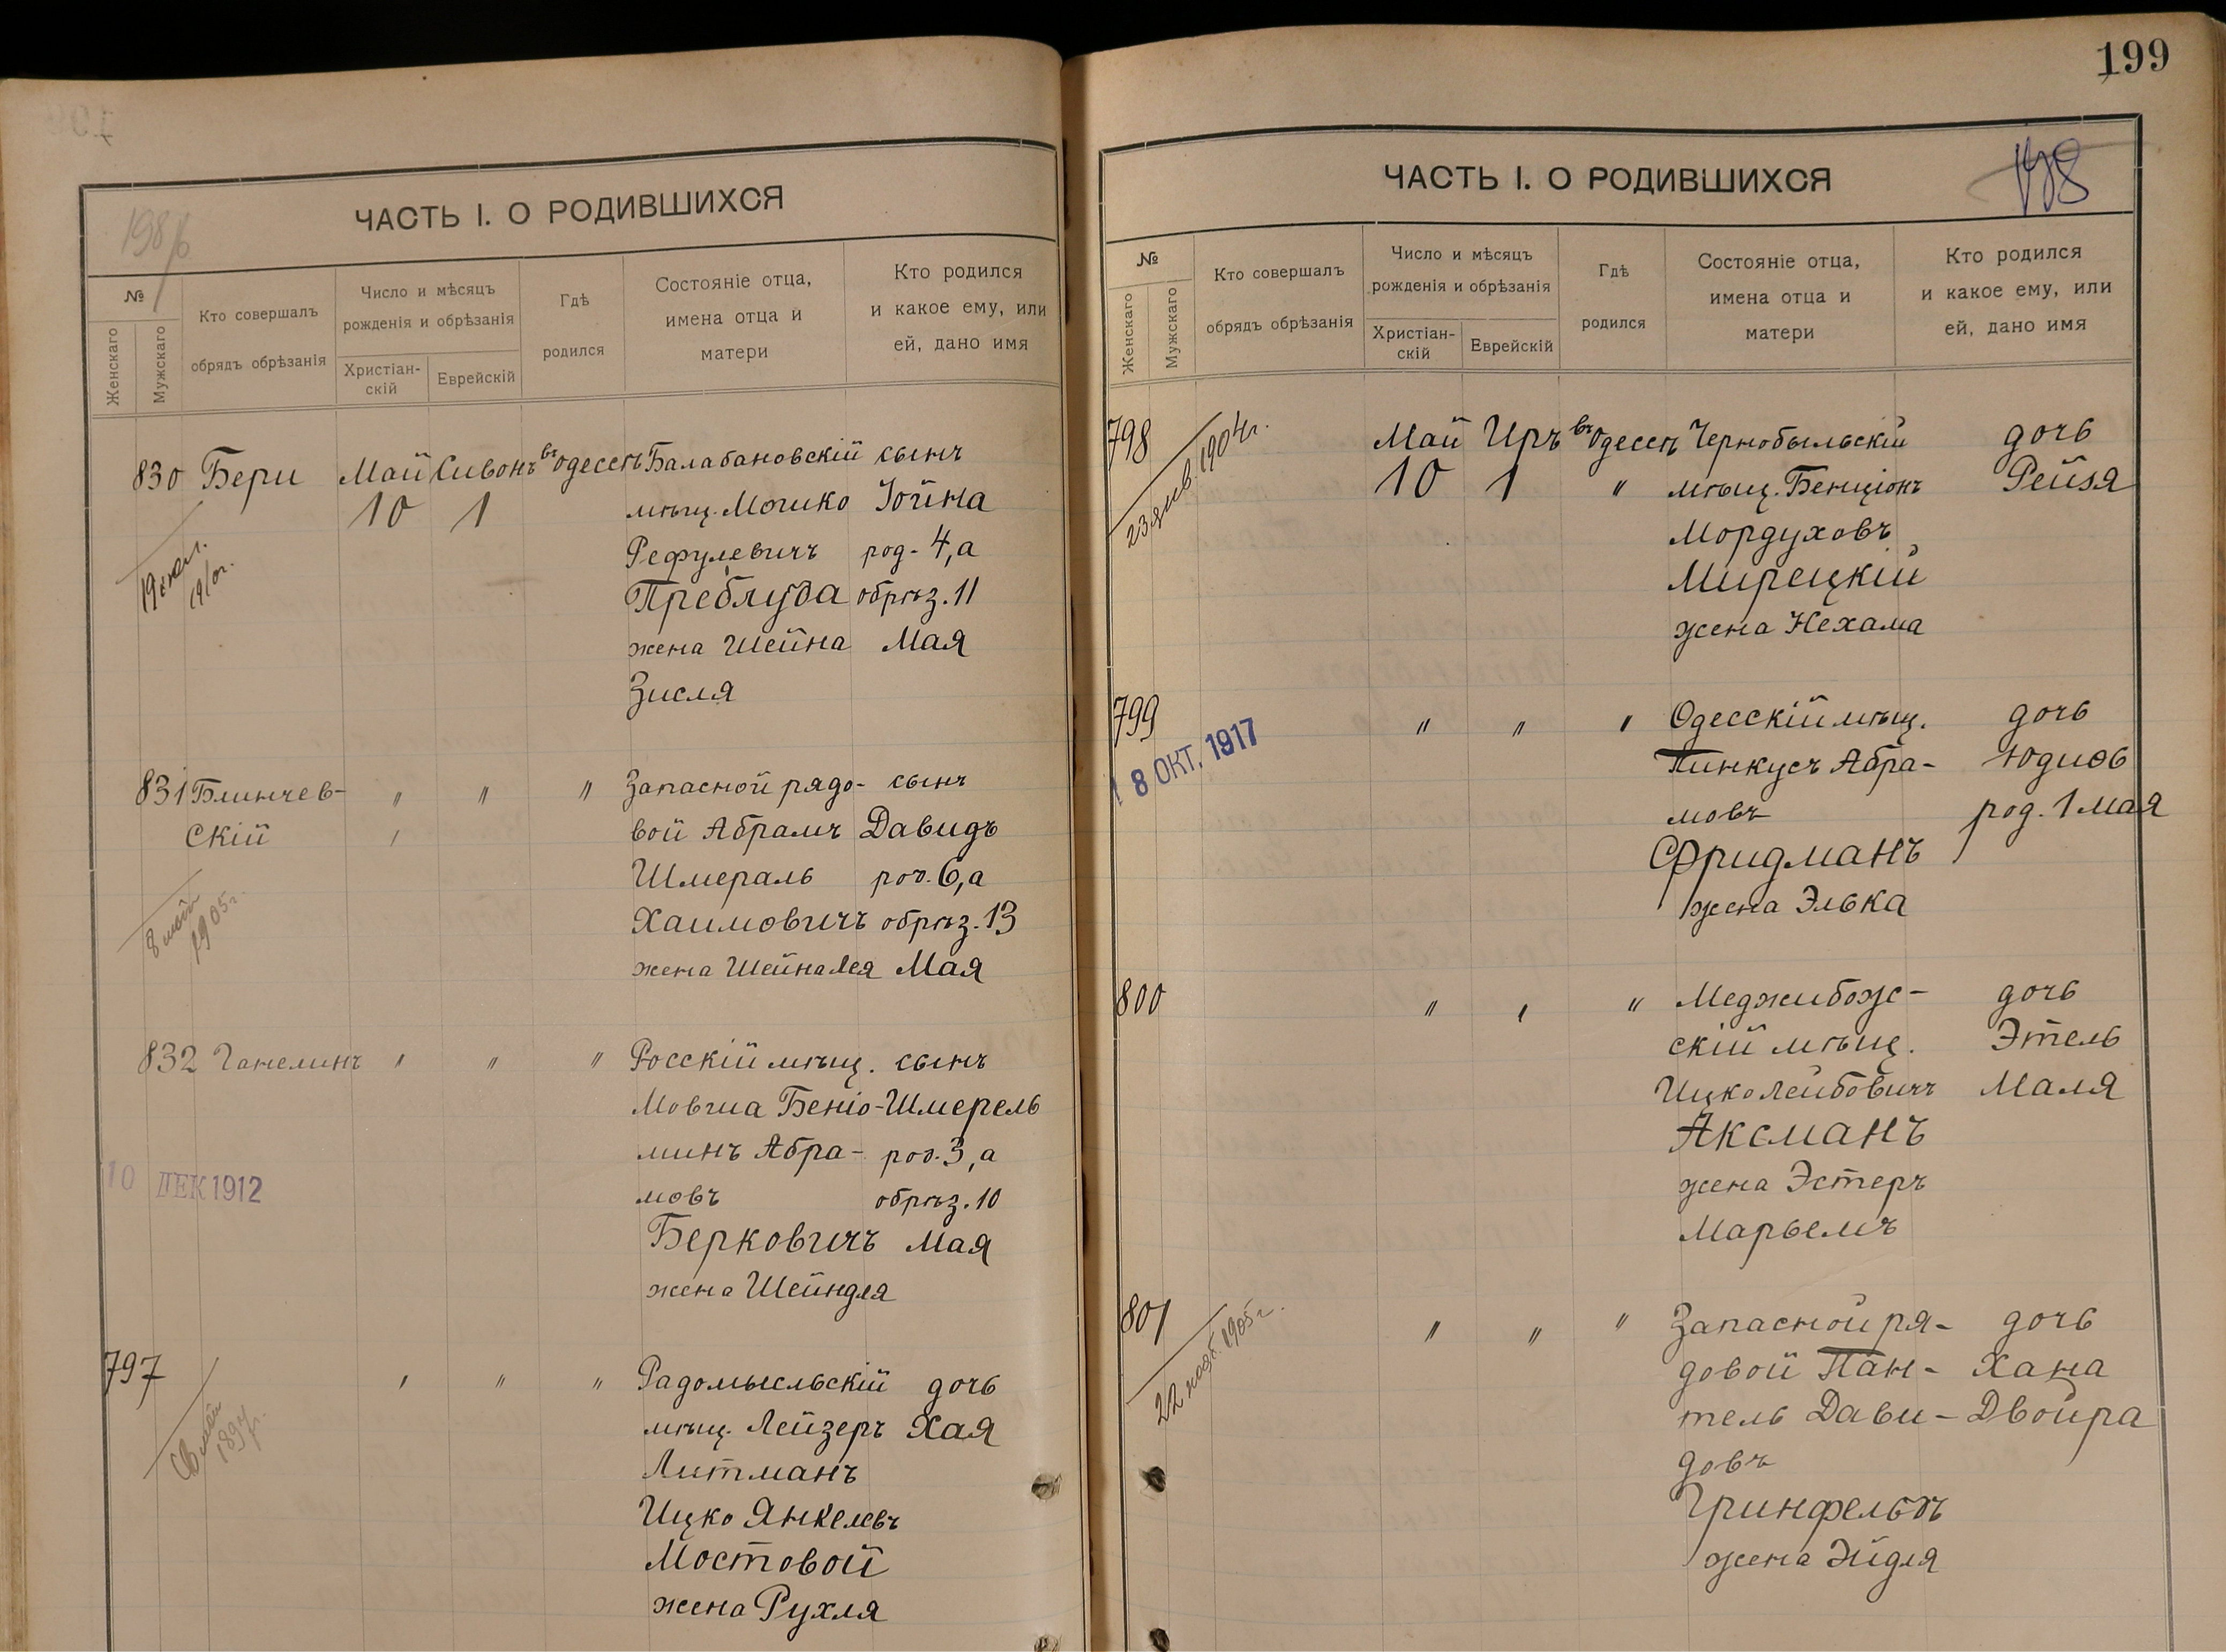 199
ЧАСТЬ I. О РОДИВШИХСЯ
№
Женскаго
Мужскаго
Кто совершалъ
обрядъ обрѣзанія
Число и мѣсяцъ
рожденія и обрѣзанія
Христіан-
скій
Еврейскій
Гдѣ
родился
Состояніе отца,
имена отца и
матери
Кто родился
и какое ему, или
ей, дано имя
830 Бери Май Сивонъ въ Одессѣ Балабановскій сынъ
10 1 мѣщ. Мошко Іойна
Рефулевичъ род. 4, а
Преблуда обрѣз. 11
жена Шейна Мая
Зисля
19 1910г.
831 Блинчев- " " " Запасной рядо- сынъ
скій вой Абрамъ Давидъ
Шмераль род. 6, а
Хаимовичъ обрѣз. 13
жена Шейна Лея Мая
8 май
1905г
832 Ганелинъ " " " Росскій мѣщ. сынъ
Мовша Беніа- Шмерель
минъ Абра- род. 3, а
мовъ обрѣз. 10
Берковичъ Мая
жена Шейндля
10 ДЕК 1912
797 " " " Радомысльскій дочь
мѣщ. Лейзеръ Хая
Литманъ
Ицко Янкелевъ
Мостовой
жена Рухля
ЧАСТЬ I. О РОДИВШИХСЯ
№
Женскаго
Мужскаго
Кто совершалъ
обрядъ обрѣзанія
Число и мѣсяцъ
рожденія и обрѣзанія
Христіан-
скій
Еврейскій
Гдѣ
родился
Состояніе отца,
имена отца и
матери
Кто родился
и какое ему, или
ей, дано имя
798 Май Иръ въ Одессѣ Чернобыльскій дочь
10 1 " мѣщ. Бенціонъ Рейзя
Мордуховъ
Мирецкій
жена Нехама
23 янв. 1904г.
799 " " " Одесскій мѣщ. дочь
Пинкусъ Абра- Юдиѳь
мовъ род. 1 мая
Фридманъ
жена Элька
18 ОКТ. 1917
800 " " " Меджибож- дочь
скій мѣщ. Этель
Ицко Лейбовичъ Маля
Аксманъ
жена Эстеръ
Марьемъ
801 " " " Запасной ря- дочь
довой Пан- Хана
тель Дави- Двойра
довъ
Гринфельдъ
жена Эйдля
22 нояб. 1905г.